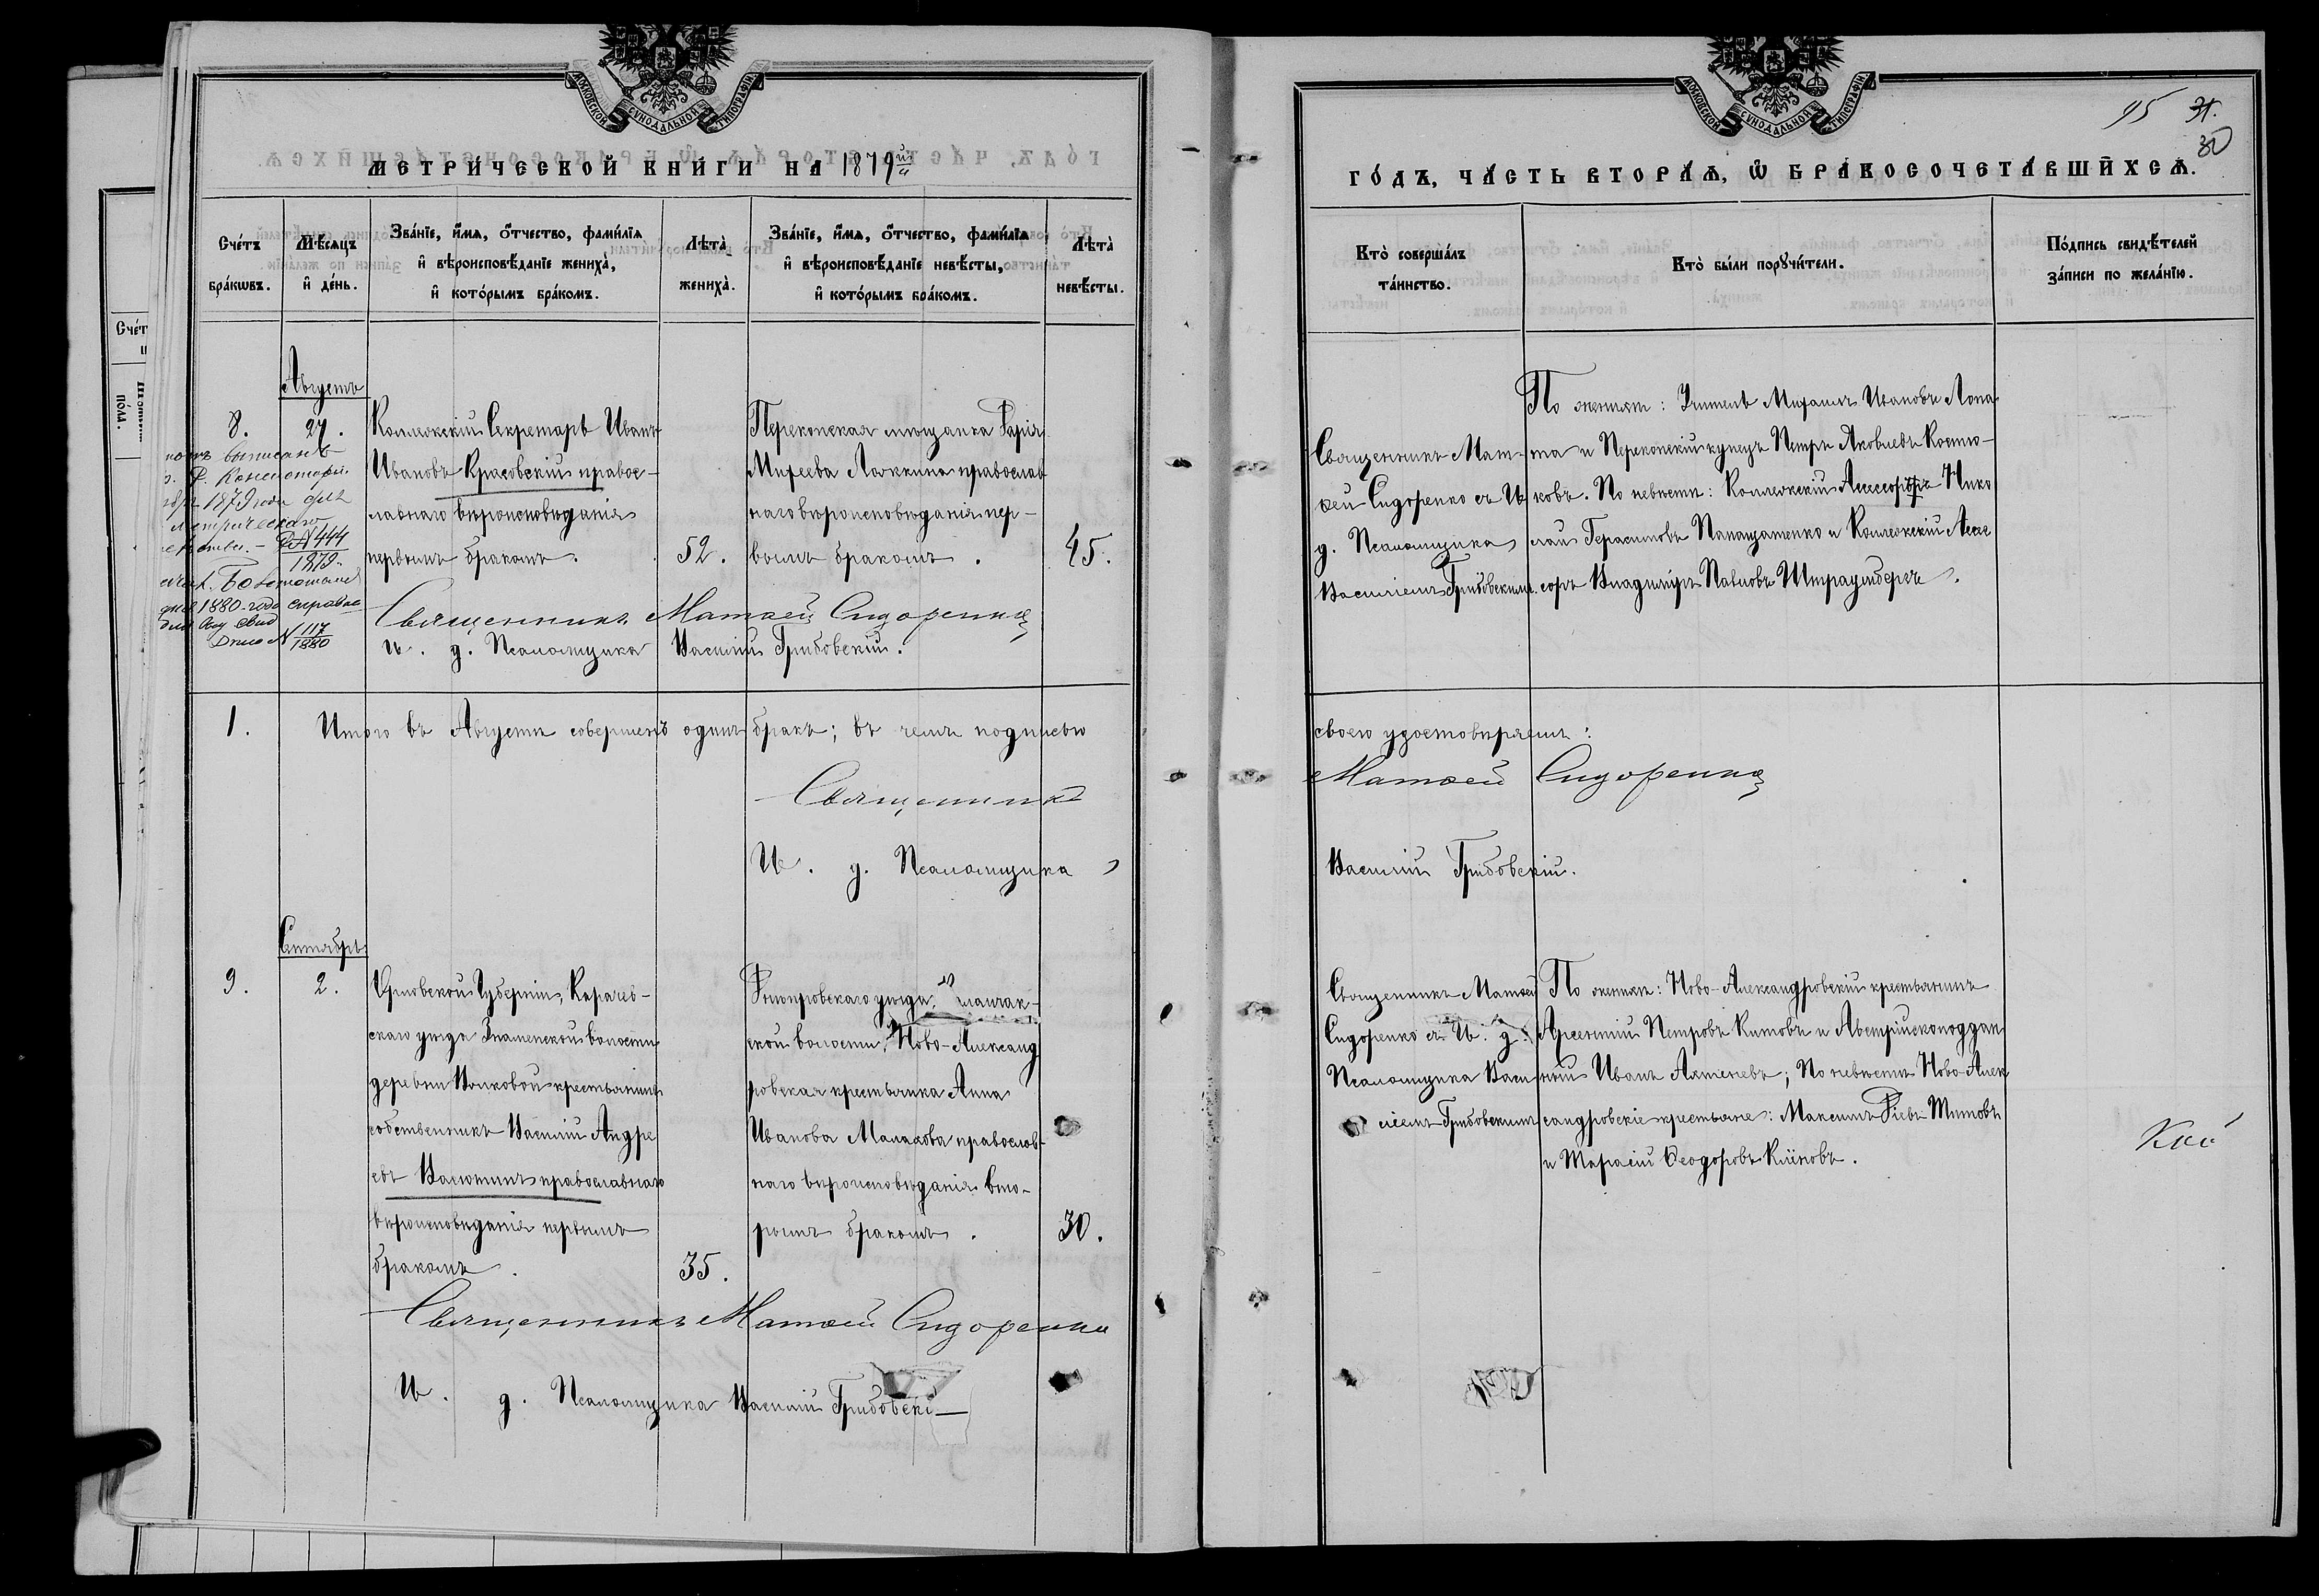 МОСКОВСКОЙ СѴНОДАЛЬНОЙ ТИПОГРАФІИ
МЕТРИ́ЧЕСКОЙ КНИ́ГИ НА 1879й
Сче́тъ бра́кѡвъ.
Мѣ́сѧцъ и҆ де́нь.
Зва́нїе, и҆́мѧ, ѻ҆́тчество, фамѝлїѧ
и҆ вѣроисповѣ́данїе жениха̀,
и҆ кото́рымъ бра́комъ.
Лѣта̀ жениха̀.
Зва́нїе, и҆́мѧ, ѻ҆́тчество, фамѝлїѧ
и҆ вѣроисповѣ́данїе невѣ́сты,
и҆ кото́рымъ бра́комъ.
Лѣта̀ невѣ́сты.
Августъ
8.
27.
Коллежскій Секретарь Иванъ
Ивановъ Красовскій правос-
лавнаго вѣроисповѣданія
первымъ бракомъ.
52.
Перекопская мещанка Дарія
Матѳеева Ложкина православ
наго вѣроисповѣданія пер-
вымъ бракомъ.
45.
выписанъ
Консисторіи
1879 года для
метрическаго
№ 444
1879
1880 года справка
Дѣло № 117
1880
Священникъ Матѳей Сидоренко
И. д. Псаломщика Василій Грибовскій.
1.
Итого въ Августѣ совершенъ одинъ бракъ; въ чемъ подписью
Священникъ
И. д. Псаломщика
Сентябрь
9.
2.
Орловской Губерніи, Карачев-
скаго уѣзда Знаменской волости
деревни Волковой крестьянинъ
собственникъ Василій Андре
евъ Волотинъ православнаго
вѣроисповѣданія первымъ
бракомъ.
35.
Днѣпровскаго уѣзда,
ской волости, Ново-Александ
ровская крестьянка Анна
Иванова Малахова православ-
наго вѣроисповѣданія вто-
рымъ бракомъ.
30.
Священникъ Матѳей Сидоренко
И. д. Псаломщика Василій Грибовскі
МОСКОВСКОЙ СѴНОДАЛЬНОЙ ТИПОГРАФІИ
95 31.
30
ГО́ДЪ, ЧА́СТЬ ВТОРА́Ѧ, Ѡ҆ БРАКОСОЧЕТА́ВШИХСѦ.
Кто̀ соверша́лъ та́инство.
Кто̀ бы́ли порꙋчи́тели.
По́дпись свидѣ́телей за́писи по жела́нїю.
Священникъ Мат-
ѳей Сидоренко съ И.
д. Псаломщика
Василіемъ Грибовскимъ.
По женихѣ: Учитель Михаилъ Ивановъ Лопа
та и Перекопскій купецъ Петръ Яковлевъ Костю-
ковъ. По невѣстѣ: Коллежскій Ассессоръ Нико
лай Герасимовъ Папащатенко и Коллежскій Ассес
соръ Владиміръ Павловъ Штраумбергъ.
своею удостовѣряемъ:
Матѳей Сидоренко
Василій Грибовскій.
Священникъ Матѳей
Сидоренко съ И. д.
Псаломщика Васи
ліемъ Грибовскимъ
По женихѣ: Ново-Александровскій крестьянинъ
Арсентій Петровъ Китовъ и Австрійскоподдан
ный Иванъ Ахтеневъ; По невѣстѣ Ново-Алек
сандровскіе крестьяне: Максимъ Титовъ
и Тарасій Ѳеодоровъ Клѣновъ.